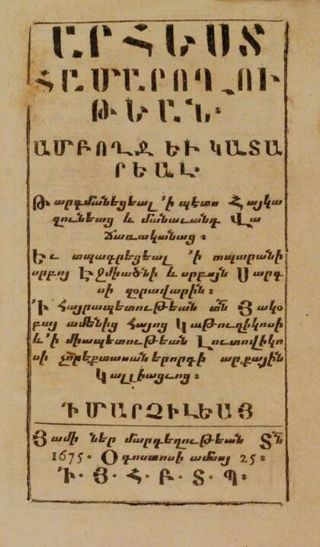 ԱՐՀԵՍՏ
ՀԱՄԱՐՈՂՈՒ
ԹԵԱՆ։
ԱՄԲՈՂՋ ԵՒ ԿԱՏԱ
ՐԵԱԼ
Թարգմանեցեալ ՚ի պետս Հայկա
զունեաց և մանաւանդ Վա
ճառականաց։
Եւ տպագրեցեալ ՚ի տպարանի
սրբոյ Էջմիածնի և սրբոյն Սարգ
սի զօրավարին։
՚Ի Հայրապետութեան տն Յակօ
բայ ամենից Հայոց Կաթուղիկոսի
և ՚ի միապետութեան Լուտովիկո
սի չորեքտասաներորդի արքային
Կալլիացւոց։
ՅՄԱՐՉԻԼԵԱՅ
Յամի ներ մարդեղութեան Տն
1675. Օգոստոսի ամսոյ 25։
Ի. Յ. Հ. Բ. Տ. Պ։